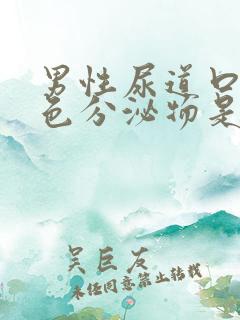 男性尿道口
色分泌物是
吴巨友
未经同意禁止转载